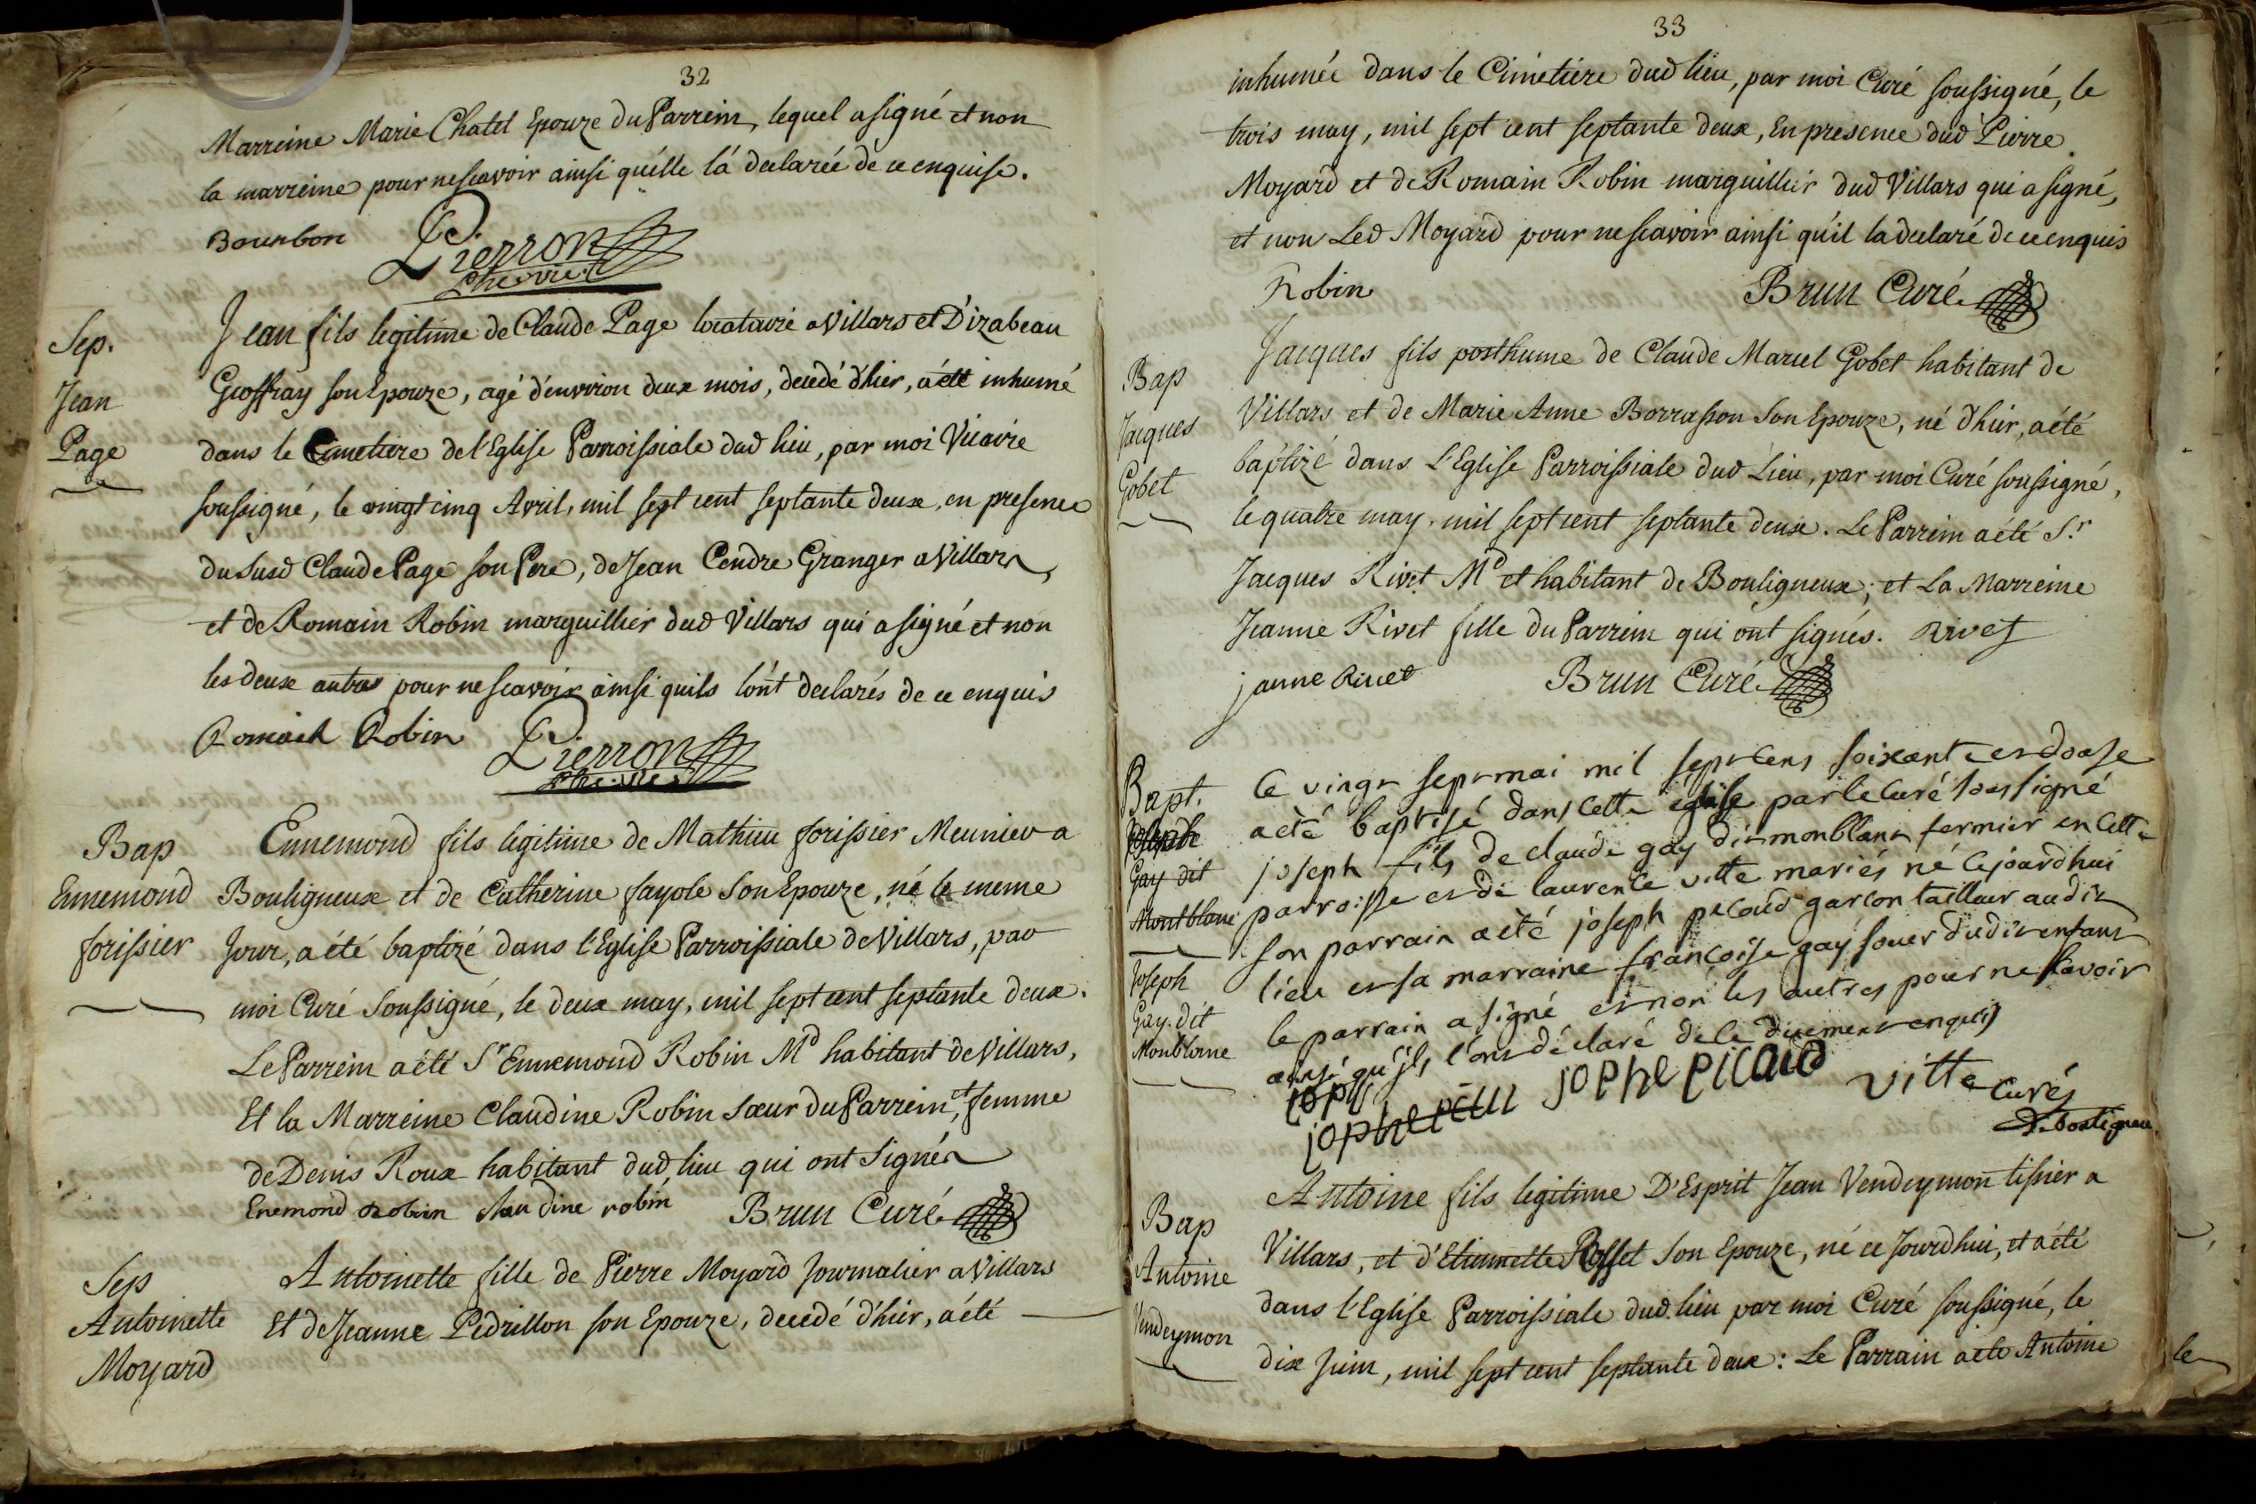 32
Marreine Marie Chatel Epouze du Parrein, lequel a signé et non
la marreine pour ne scavoir ainsi quélle lá declarée de ce enquise.
Bourbon Pierron
Sep.
Jean
Page
Jean fils legitime de Claude Page locataire a Villars et D'izabeau
Geoffray son Epouze, agé d'environ deux mois, decedé d'hier, a été inhumé
dans le Cimetiere de l'Eglise Parroissiale dud lieu, par moi Vicaire
soussigné, le vingt cinq Avril, mil sept cent septante deux, en presence
du susd Claude Page son Pere, de Jean Cendre Granger a Villars,
et de Romain Robin marguillier dud Villars qui a signé et non
les deux autres pour ne scavoir ainsi quils lont declarés de ce enquis
Romain Robin Pierron
Bap
Ennemond
forissier
Ennemond fils legitime de Mathieu forissier Meunier a
Bouligneux et de Catherine fayole son Epouze, né le meme
Jour, a été baptizé dans l'Eglise Parroissiale de Villars, par
moi Curé Soussigné, le deux may, mil sept cent septante deux.
Le Parrein a été Sr Ennemond Robin Md habitant de Villars,
Et la Marreine Claudine Robin sœur du Parrein, et femme
de Denis Roux habitant dud lieu qui ont Signés
Enemond Robin claudine robin Brun Curé
Sep
Antoinette
Moyard
Antoinette fille de Pierre Moyard Journalier a Villars
Et de Jeanne Pédrillon son Epouze, decedé d'hier, a été
33
inhumée dans le Cimetiere dud lieu, par moi Curé soussigné, le
trois may, mil sept cent septante deux, En presence dud Pierre
Moyard et de Romain Robin marguillier dud Villars qui a signé,
et non Led Moyard pour ne scavoir ainsi qu'il la declaré de ce enquis
Robin Brun Curé
Bap
Jacques
Gobet
Jacques fils posthume de Claude Marcel Gobet habitant de
Villars et de Marie Anne Borrasson Son Epouze, né d'hier, a été
baptizé dans L'Eglise Parroissiale dud Lieu, par moi Curé soussigné,
le quatre may, mil sept cent septante deux. Le Parrein a été Sr
Jacques Rivet Md et habitant de Bouligneux; et La Marreine
Jeanne Rivet fille du Parrein qui ont signés. Rivet
janne Rivet Brun Curé
Bapt.
Joseph
Gay dit
Montblanc
Joseph
Gay. dit
Monblanc
Ce vingt sept mai mil sept cens soixante et doase
a été baptisé dans cette église par le curé soussigné
joseph fils de claude gay dit monblanc fermier en cette
parroisse et de laurence vitte mariés né cejourdhui
son parrain a été joseph picoud garcon tailleur audit
lieu et sa marraine francoise gay souer dudit enfant
le parrain a signé et non les autres pour ne scavoir
ainsi qu'ils l'ont déclaré de ce duement enquis
joph
jophe jophe picaud vitte curés
de boligneu
Bap
Antoine
Vendeymon
Antoine fils legitime D'Esprit Jean Vendeymon tissier a
Villars, et d'Etiennette Rosset Son Epouze, né ce Jourdhui, et a été
dans l'Eglise Parroissiale dud. lieu par moi Curé soussigné, le
dix Juin, mil sept cent septante deux: Le Parrain a été Antoine
le